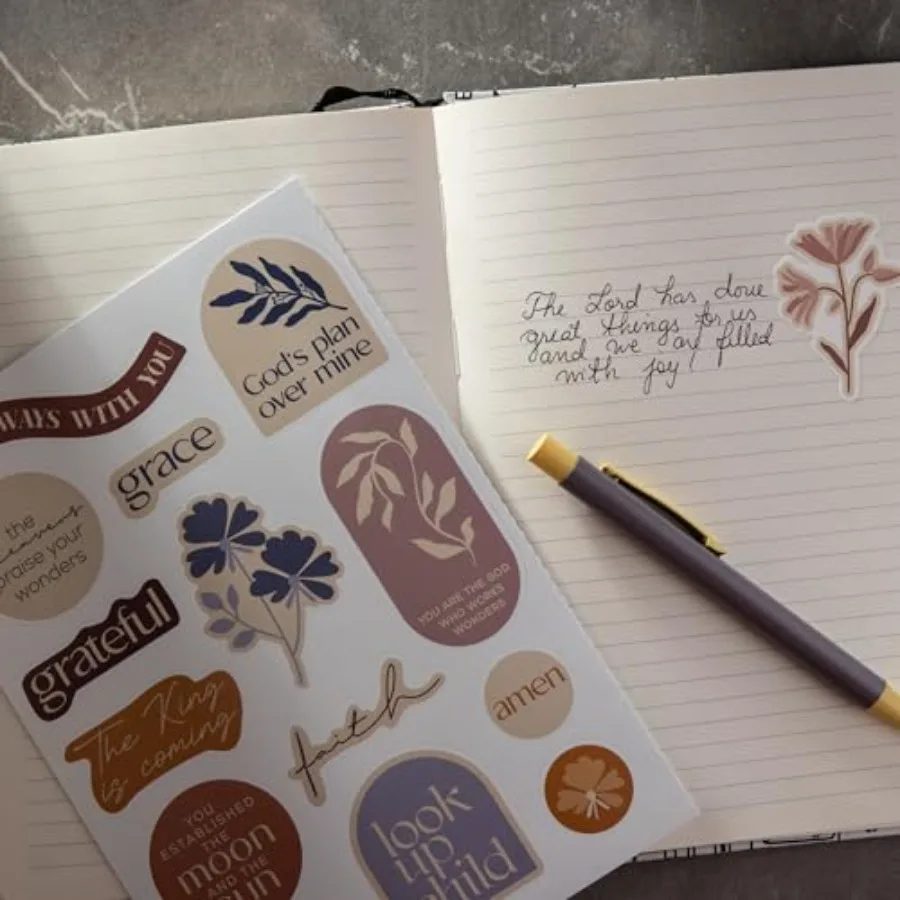 God's plan
over mine
WAYS WITH YOU
grace
the
heavens
praise your
wonders
YOU ARE THE GOD
WHO WORKS
WONDERS
grateful
The King
is coming
faith
amen
YOU
ESTABLISHED
THE
moon
AND THE
sun
look
up
child
The Lord has done
great things for us
and we are filled
with joy!